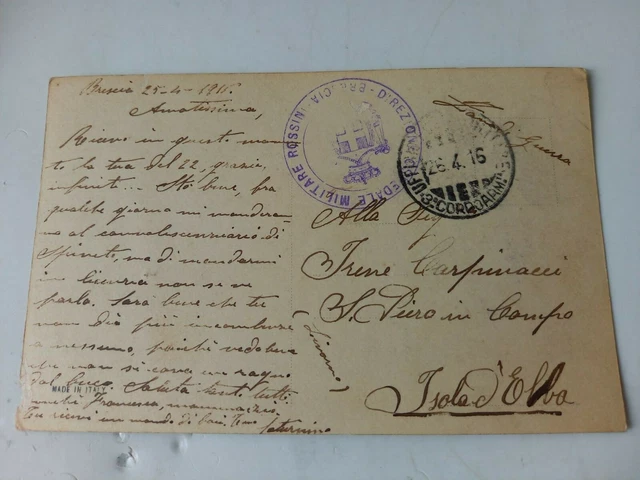 Brescia 25-4-1916
Amatissima,
Ricevo in questo momen
to la tua del 22, grazie
infinite... Sto bene, fra
qualche giorno mi manderan
no al convalescenziario di
Spineto, ma di mandarmi
in licenza non se ne
parla. Sarà bene che tu
non dia più incombenze
a nessuno, poichè vedo bene
che non si cava un ragno
dal buco. Saluta tanto tutti
Francesca, mamma
Tu ricevi un mondo di baci. Tuo
Saturnino
MADE IN ITALY
OSPEDALE MILITARE ROSSINI BRESCIA - DIREZIO
UFFI
26.4.16
3° CORPO
Zona di Guerra
Alla Sig
Irene Carpinacci
S. Piero in Campo
(Livorno)
Isola d'Elba